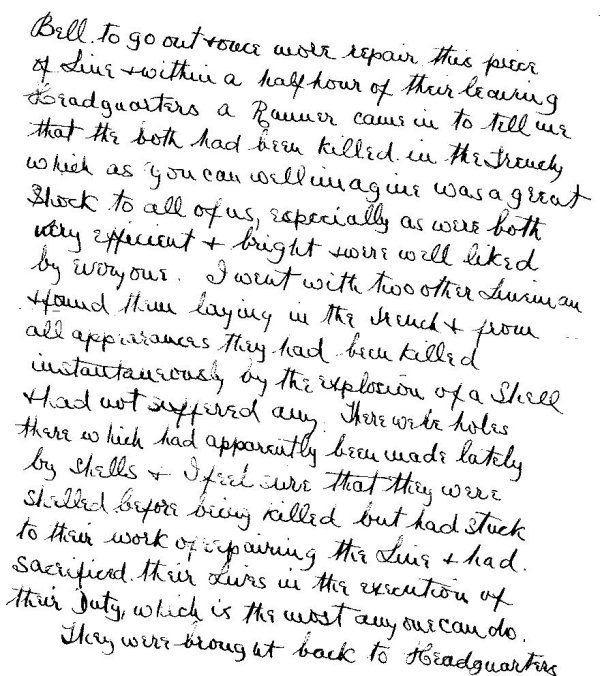 Bell to go out & once more repair this piece
of Line & within a half hour of their leaving
Headquarters a Runner came in to tell me
that the both had been killed in the Trench
which as you can well imagine was a great
Shock to all of us, especially as were both
very efficient & bright & were well liked
by everyone. I went with two other Lineman
& found them laying in the trench & from
all apperarances they had been killed
instantaneously by the explosion of a Shell
& had not suffered any. There were holes
there which had apparently been made lately
by shells & I feel sure that they were
shelled before being killed but had stuck
to their work of repairing the Line & had
sacrificed their Lives in the execution of
their Duty, which is the most any one can do.
They were brought back to Headquarters